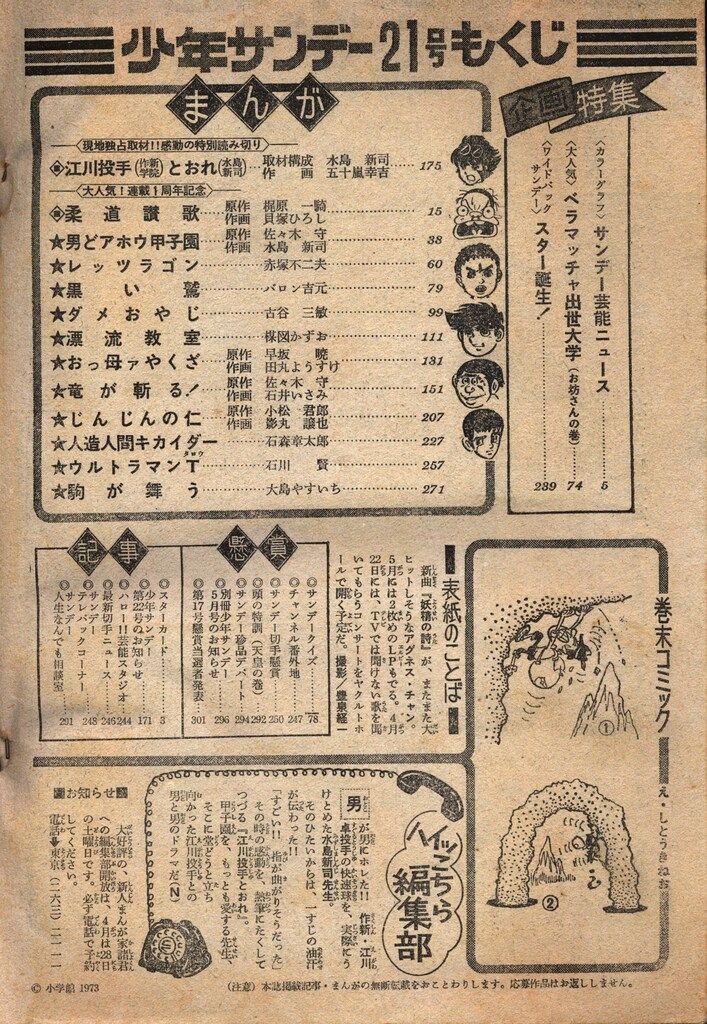 少年サンデー21号もくじ
まんが
現地独占取材!!感動の特別読み切り
◉江川投手(作新学院)とおれ(水島新司) 取材構成 水島 新司 作 画 五十嵐幸吉 175
大人気!連載1周年記念
◉柔道讃歌 原作 梶原 一騎 作画 貝塚ひろし 15
★男どアホウ甲子園 原作 佐々木 守 作画 水島 新司 38
★レッツラゴン 赤塚不二夫 60
★黒い鷲 バロン吉元 79
★ダメおやじ 古谷 三敏 99
★漂流教室 楳図かずお 111
★おっ母ァやくざ 原作 早坂 暁 作画 田丸ようすけ 131
★竜が斬る! 原作 佐々木 守 作画 石井いさみ 151
★じんじんの仁 原作 小松 君郎 作画 影丸 譲也 207
★人造人間キカイダー 石森章太郎 227
★ウルトラマンT(タロウ) 石川 賢 257
★駒が舞う 大島やすいち 271
企画特集
〈カラーグラフ〉サンデー芸能ニュース 5
〈大人気〉ベラマッチャ出世大学(お坊さんの巻) 74
〈ワイドパックサンデー〉スター誕生! 239
懸賞
◎サンデークイズ 78
◎チャンネル番外地 247
◎サンデー切手懸賞 250
◎頭の特訓(天皇の巻) 292
◎サンデー珍品デパート 294
◎別冊少年サンデー5月号のお知らせ 296
◎第17号懸賞当選者発表 301
記事
◎スターカード 3
◎少年サンデー第22号のお知らせ 171
◎ハロー!!芸能スタジオ 244
◎最新切手ニュース 246
◎サンデーテレパックコーナー 248
◎人生なんでも相談室 291
表紙のことば
新曲『妖精の詩』が、またまた大
ヒットしそうなアグネス・チャン。
5月には2枚めのLPもでる。4月
22日には、TVでは聞けない歌を聞
いてもらうコンサートをヤクルトホ
ールで開く予定だ。撮影/豊泉経一
巻末コミック
え・しとうきねお
①
②
ハイッこちら編集部
男が男にホレた!! 作新・江川
卓投手の快速球を、実際にう
けとめた水島新司先生。
そのひたいからは、一すじの油汗
が伝わった!!
「すごい!! 指が曲がりそうだった」
その時の感動を、熱筆にたくして
つづる『江川投手とおれ』。
甲子園を、もっとも愛する先生、
そこに堂どうと立ち
向かった江川投手との
男と男のドラマだ(N)
お知らせ
大好評の、新人まんが家諸君
への編集部開放は、4月は28日
の土曜日です。必ず電話で予約
してください。
© 小学館 1973
(注意)本誌掲載記事・まんがの無断転載をおことわりします。応募作品はお返ししません。